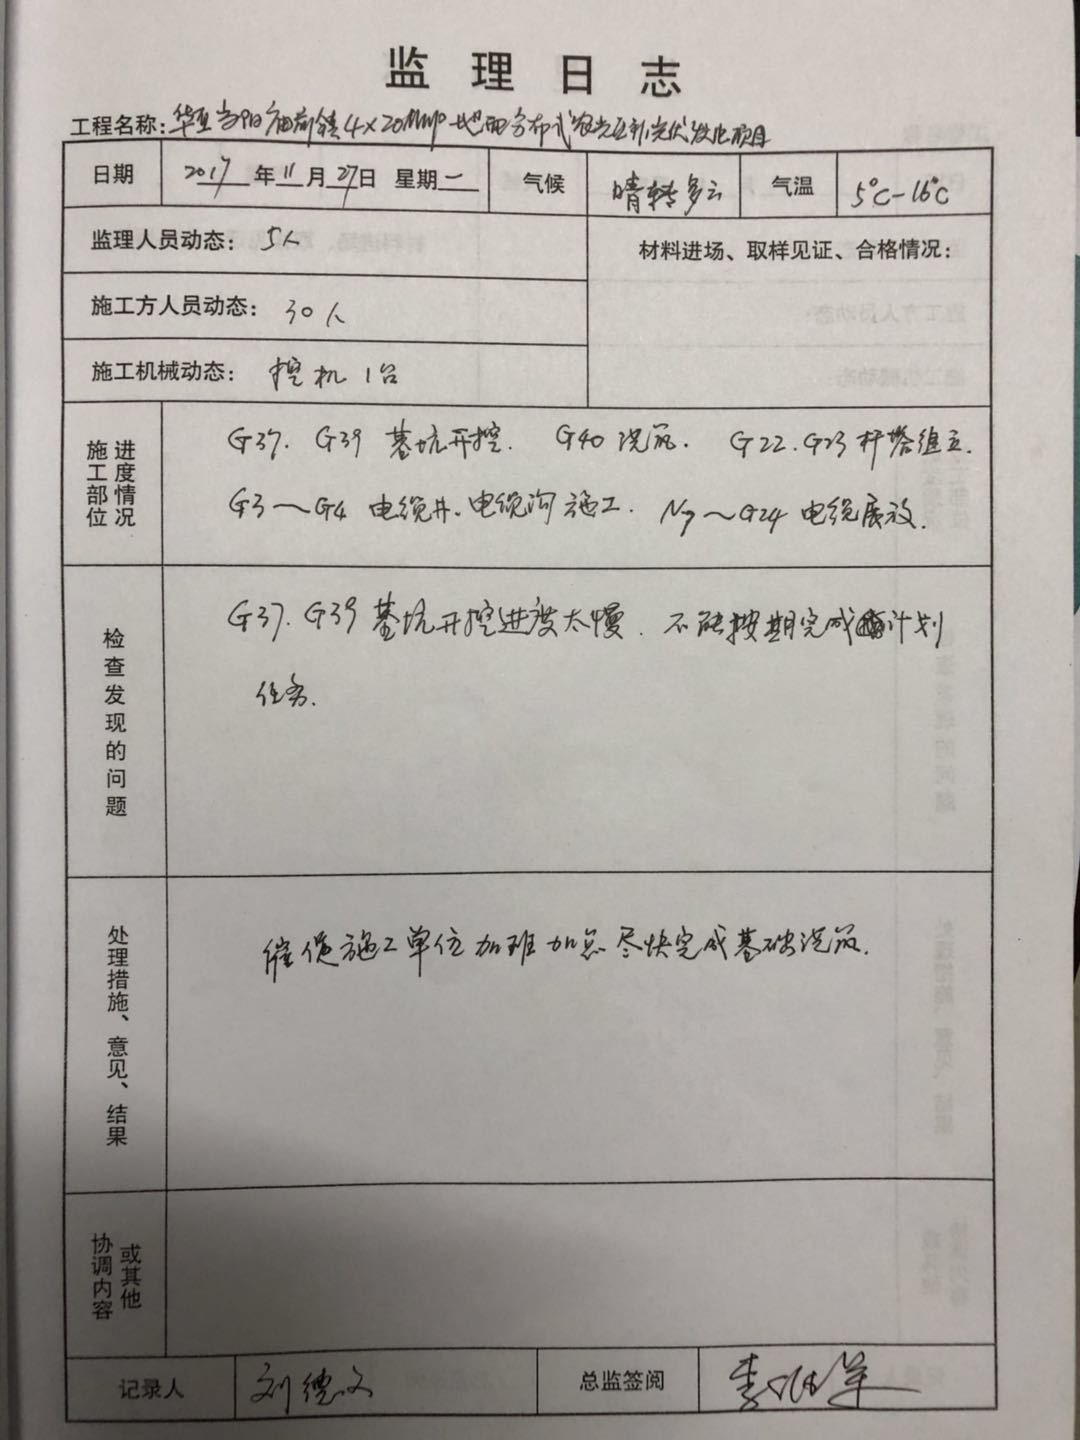 监理日志
工程名称：华 当阳庙前镇4×20MWp 地面分布式农光互补光伏发电项目
日期 2017年11月27日 星期一 气候 晴转多云 气温 5℃-16℃
监理人员动态：5人 材料进场、取样见证、合格情况：
施工方人员动态：30人
施工机械动态：挖机1台
进度情况
施工部位
G37.G39基坑开挖. G40浇筑. G22.G23杆塔组立.
G3～G4电缆井、电缆沟施工. N7～G24电缆展放.
检查发现的问题
G37.G39基坑开挖进度太慢.不能按期完成计划
任务.
处理措施、意见、结果
催促施工单位加班加点尽快完成基础浇筑.
或其他
协调内容
记录人 刘德文 总监签阅 李